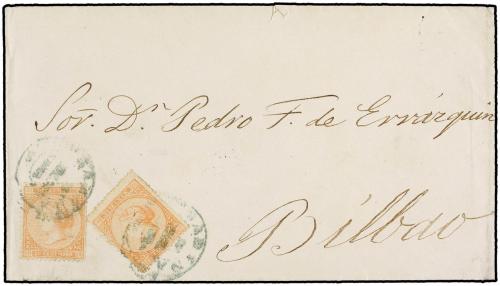 Sor. Dn. Pedro F. de Errárquin
Bilbao